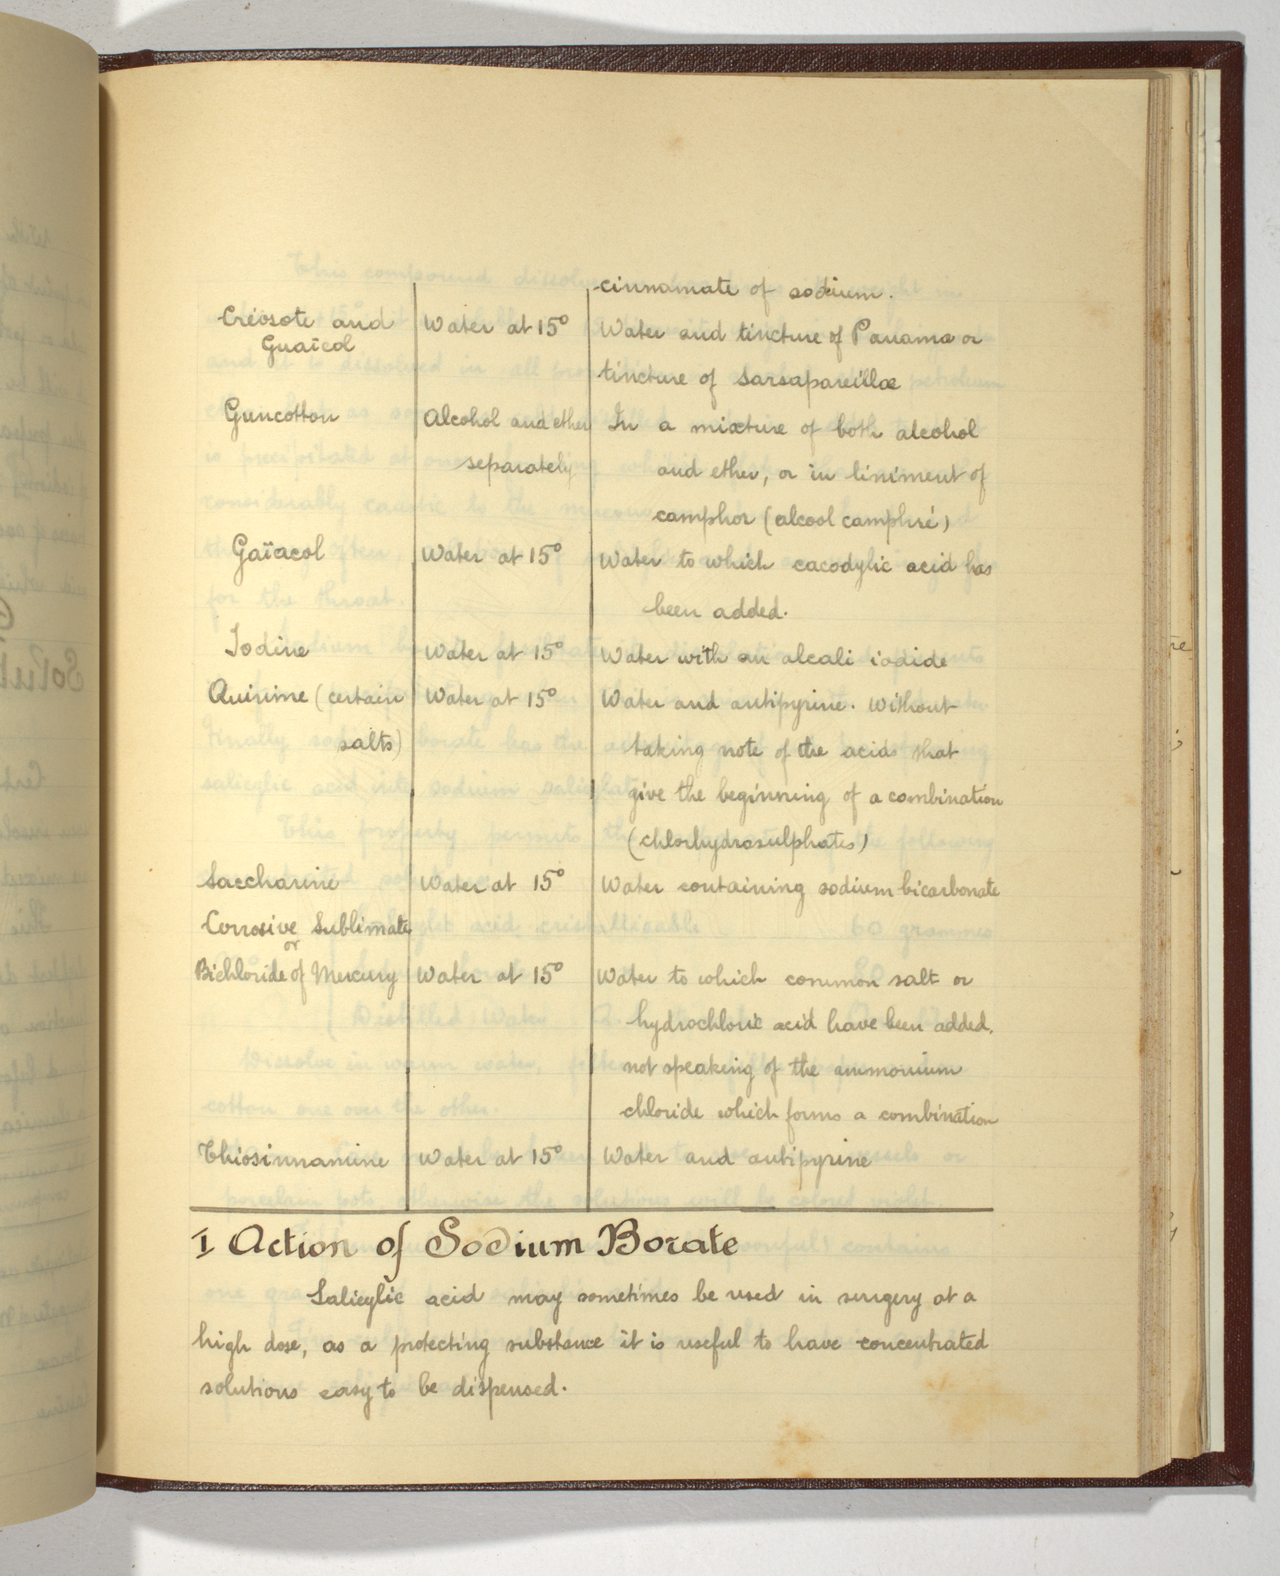 cinnamate of sodium.
Créosote and Water at 15° Water and tincture of Panama or
Guaïcol
tincture of Sarsapareillae
Guncotton Alcohol and ether In a mixture of both alcohol
separately and ether, or in liniment of
camphor (alcool camphré)
Gaïacol Water at 15° Water to which cacodylic acid has
been added.
Iodine Water at 15° Water with an alcali iodide
Quinine (certain Water at 15° Water and antipyrine. Without
salts) taking note of the acids that
give the beginning of a combination
(chlorhydrosulphates)
Saccharine Water at 15° Water containing sodium bicarbonate
Corrosive Sublimate
or
Bichloride of Mercury Water at 15° Water to which common salt or
hydrochloric acid have been added.
not speaking of the ammonium
chloride which forms a combination
Thiosinnamine Water at 15° Water and antipyrine
I Action of Sodium Borate
Salicylic acid may sometimes be used in surgery at a
high dose, as a protecting substance it is useful to have concentrated
solutions easy to be dispensed.